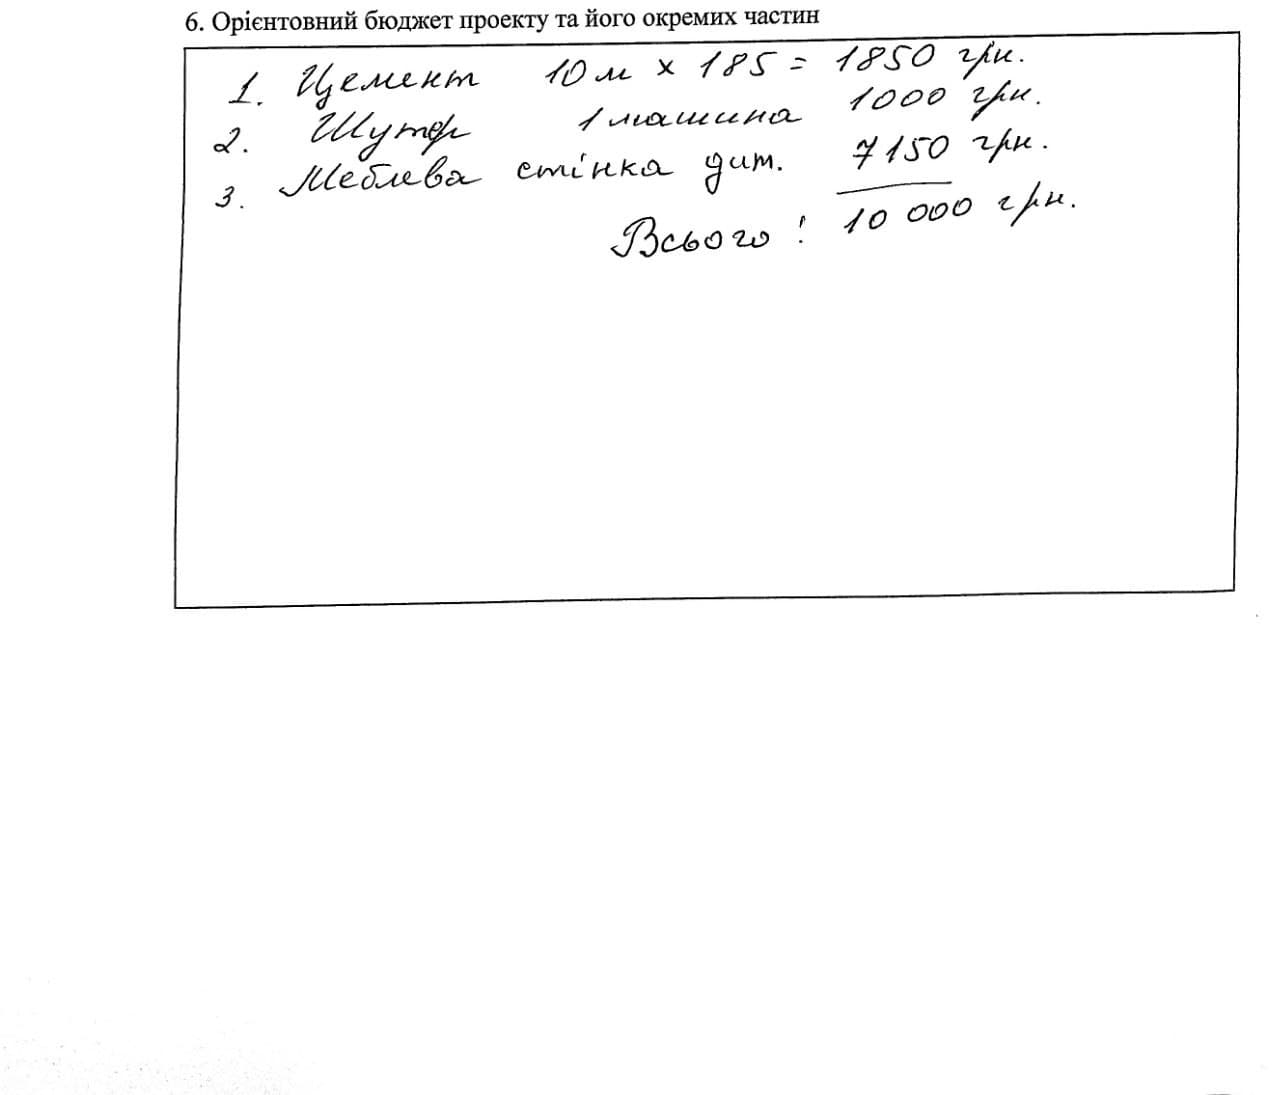 6. Орієнтовний бюджет проекту та його окремих частин
1. Цемент 10 м х 185 = 1850 грн.
2. Шутер 1 машина 1000 грн.
3. Меблева стінка дит. 7150 грн.
Всього: 10 000 грн.